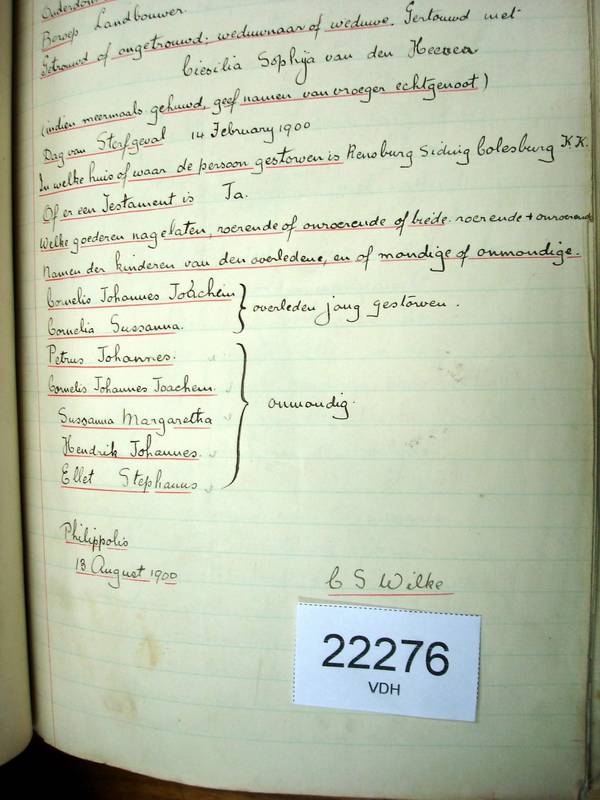 Ouderdom
Beroep Landbouwer.
Getrouwd of ongetrouwd: weduwnaar of weduwe. Getrouwd met
Ciesilia Sophÿa van den Heever
(indien meermaals gehuwd, geef namen van vroeger echtgenoot)
Dag van Sterfgeval 14 February 1900
In welke huis of waar de persoon gestorven is Rensburg Siding Colesburg K.K.
Of er een Testament is Ja.
Welke goederen nagelaten, roerende of onroerende of biede. roerende + onroerende
Namen der kinderen van den overledene, en of mondige of onmondige.
Cornelis Johannes Joachem } overleden jong gestorven.
Cornelia Sussanna.
Petrus Johannes.
Cornelis Johannes Joachem.
Sussanna Margaretha } onmondig.
Hendrik Johannes.
Ellet Stephanus
Philippolis
13 August 1900
C S Wilke
22276
VDH